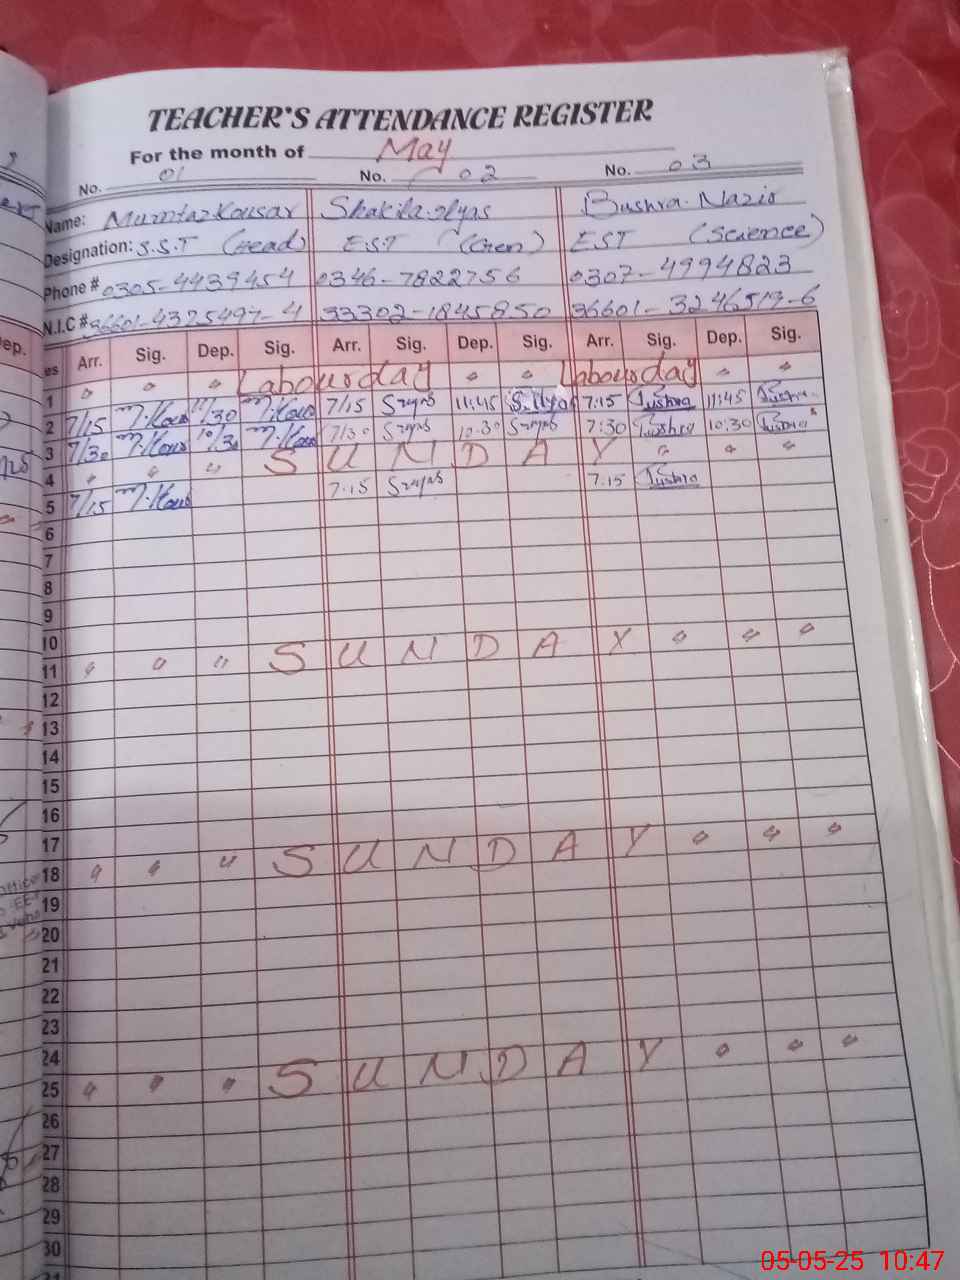 TEACHER'S ATTENDANCE REGISTER
For the month of May
No. 01 No. 02 No. 03
Name: Mumtaz Kousar Shakila Ilyas Bushra Nazir
Designation: S.S.T (Head) E.S.T (Gen) EST (Science)
Phone # 0305-4439454 0346-7822756 0307-4994823
N.I.C # 36601-4325497-4 33302-1845850 36601-3246519-6
es Arr. Sig. Dep. Sig. Arr. Sig. Dep. Sig. Arr. Sig. Dep. Sig.
1 " " " Labour day " " Labour day " "
2 7/15 M.Kous 11/30 M.Kous 7/15 11:45 S.Ilyas 7:15 Bushra 11:45 Bushra
3 7/30 M.Kous 10/30 M.Kous 7/30 10:30 7:30 Bushra 10:30 Bushra
4 " " " SUNDAY " " "
5 7/15 M.Kous 7:15 7:15 Bushra
6
7
8
9
10
11 " " " SUNDAY " " "
12
13
14
15
16
17
18 " " " SUNDAY " " "
19
20
21
22
23
24
25 " " " SUNDAY " " "
26
27
28
29
30
05-05-25 10:47